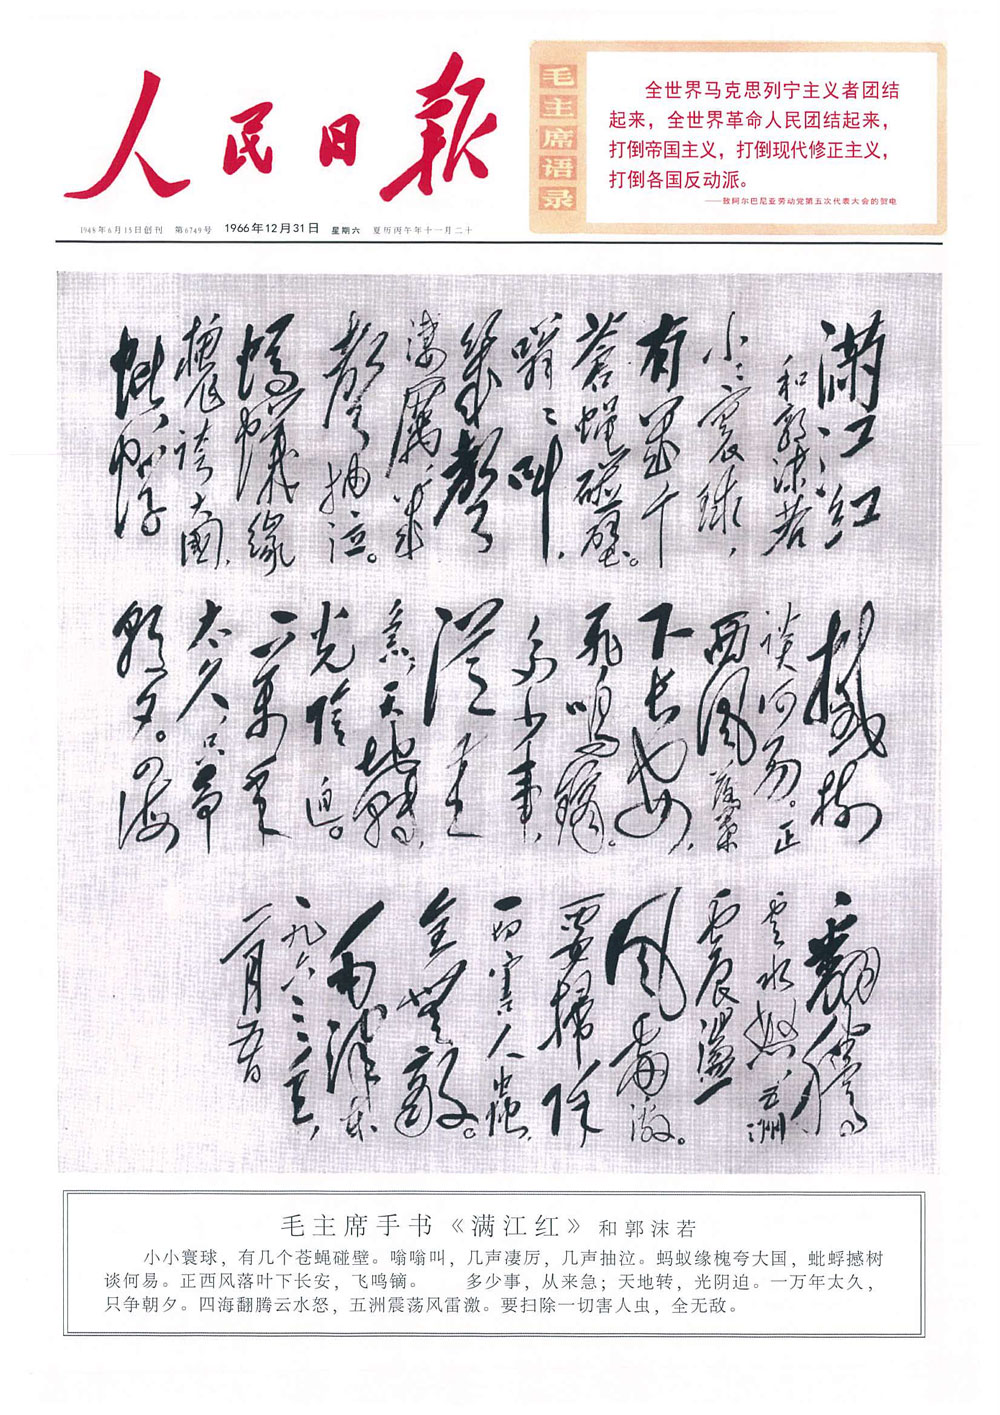 人民日报
毛主席语录
全世界马克思列宁主义者团结
起来，全世界革命人民团结起来，
打倒帝国主义，打倒现代修正主义，
打倒各国反动派。
——致阿尔巴尼亚劳动党第五次代表大会的贺电
1948年6月15日创刊 第6749号 1966年12月31日 星期六 夏历丙午年十一月二十
满江红
和郭沫若
小〻寰球，
有几个
苍蝇碰壁。
嗡〻叫，
几聲
凄厲，几
聲抽泣。
螞蟻缘
槐夸大國，
蚍蜉
撼树
谈何易。正
西风落葉
下長安，
飛鳴镝。
多少事，
從来
急；天地轉，
光陰迫。
一萬年
太久，只争
朝夕。四海
翻騰
雲水怒，五洲
震盪
风雷激。
要掃除
一切害人虫，
全無敵。
毛泽东
一九六三年，
二月五日
毛主席手书《满江红》和郭沫若
小小寰球，有几个苍蝇碰壁。嗡嗡叫，几声凄厉，几声抽泣。蚂蚁缘槐夸大国，蚍蜉撼树
谈何易。正西风落叶下长安，飞鸣镝。 多少事，从来急；天地转，光阴迫。一万年太久，
只争朝夕。四海翻腾云水怒，五洲震荡风雷激。要扫除一切害人虫，全无敌。